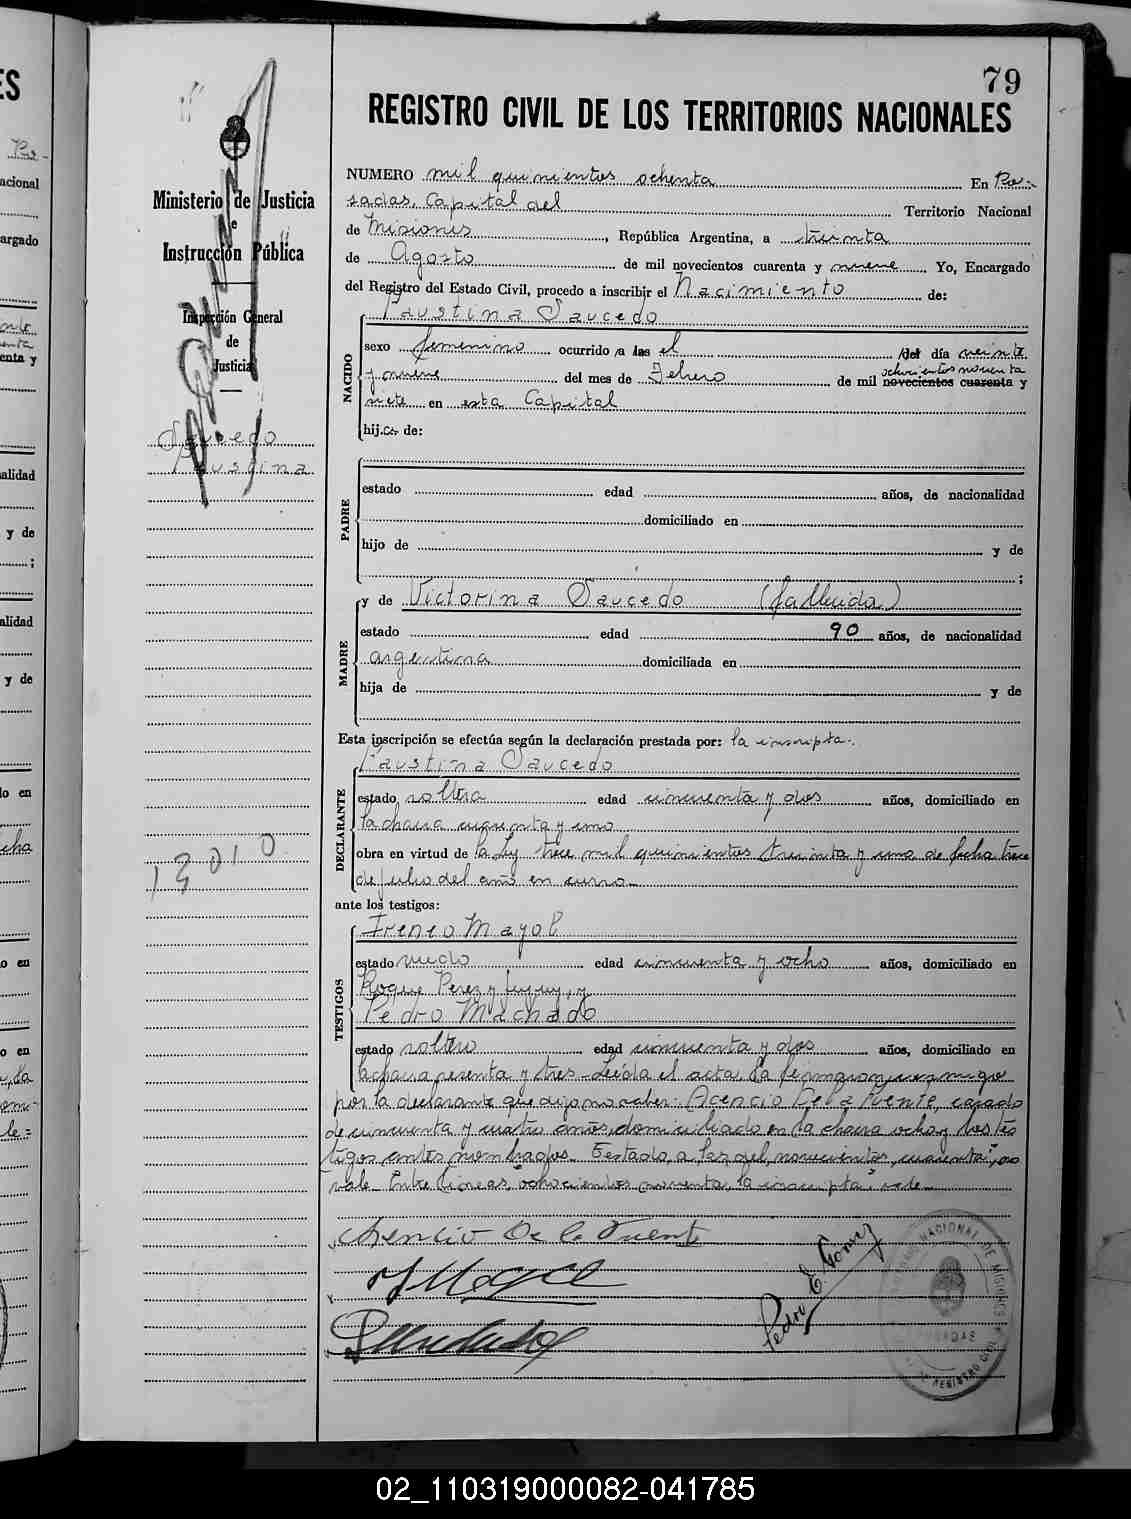 79
REGISTRO CIVIL DE LOS TERRITORIOS NACIONALES
Ministerio de Justicia
e
Instrucción Pública
Inspección General
de
Justicia
Saucedo
Faustina
13010
NUMERO mil quinientos ochenta En Po-
sadas, Capital del Territorio Nacional
de Misiones, República Argentina, a treinta
de Agosto de mil novecientos cuarenta y nueve Yo, Encargado
del Registro del Estado Civil, procedo a inscribir el Nacimiento de:
Faustina Saucedo
NACIDO
sexo femenino ocurrido a las el del día veinte
ochocientos noventa
y nueve del mes de Febrero de mil novecientos cuarenta y
siete en esta Capital
hij.a de:
PADRE
estado edad años, de nacionalidad
domiciliado en
hijo de y de
;
MADRE
y de Victorina Saucedo (fallecida)
estado edad 90 años, de nacionalidad
argentina domiciliada en
hija de y de
Esta inscripción se efectúa según la declaración prestada por: la inscripta.
DECLARANTE
Faustina Saucedo
estado soltera edad cincuenta y dos años, domiciliado en
la chacra cuarenta y uno
obra en virtud de la Ley trece mil quinientos treinta y uno de fecha trece
de julio del año en curso
ante los testigos:
TESTIGOS
Ireneo Mayol
estado viudo edad cincuenta y ocho años, domiciliado en
Roque Perez y Jujuy, y
Pedro Machado
estado soltero edad cincuenta y dos años, domiciliado en
la chacra sesenta y tres - Leída el acta, la firman a ruego
por la declarante que dijo no saber: Acencio De la Fuente, casado
de cincuenta y cuatro años, domiciliado en la chacra ocho y los tes
tigos antes nombrados. Testado, a las, del, novecientos, cuarenta, no
vale. Entre lineas, ochocientos noventa, la inscripta" vale
Acencio De la Fuente
Pedro E. Gomez
POSADAS
02_110319000082-041785